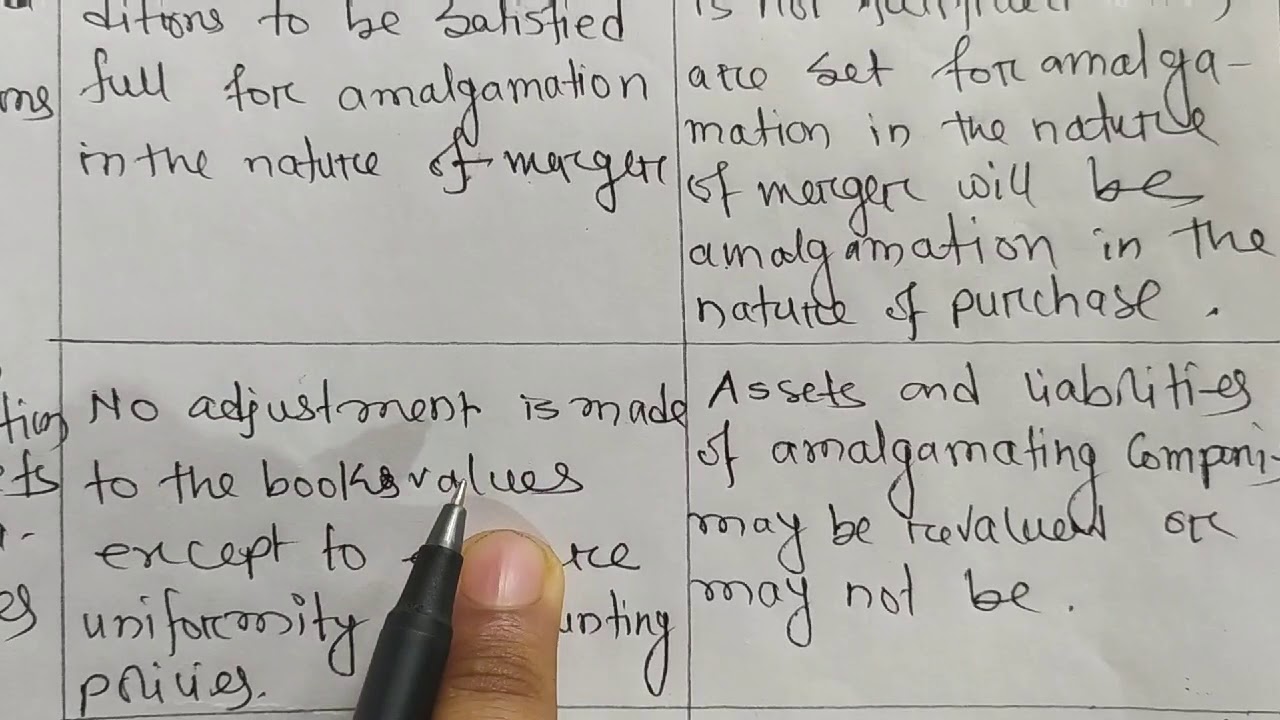 ditions to be satisfied
full for amalgamation
in the nature of merger
is not
are set for amalga-
mation in the nature
of merger will be
amalgamation in the
nature of purchase.
No adjustment is made
to the books values
except to
uniformity
policies.
Assets and liabilities
of amalgamating Compani-
may be revalued or
may not be.